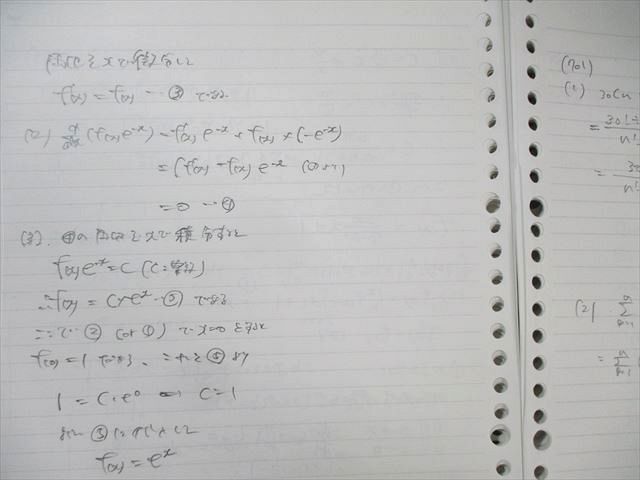 両辺をxで微分して
f'(x) = f(x) … ③ である
(2) d/dx (f(x)e^{-x}) = f'(x) e^{-x} + f(x) × (-e^{-x})
= (f'(x) - f(x)) e^{-x}
= 0 … ④
(3). ④の両辺をxで積分すると
f(x)e^{-x} = C (C:定数)
∴ f(x) = C × e^x … ⑤ である
② (or ①) で x=0 を
f(0) = 1 である、これと ⑤ より
1 = C・e^0 ⇔ C = 1
⑤に代入して
f(x) = e^x
(701)
(1) 30Cn
(2) Σ